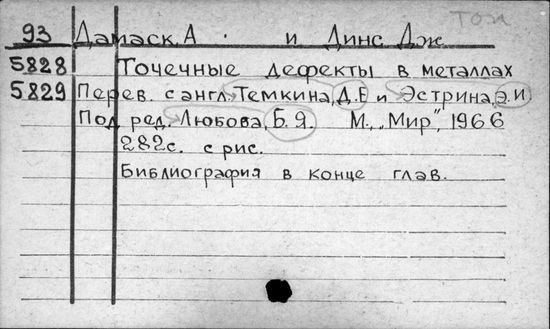 Том
93 Дамаск, А. и Динс, Дж.
5828 Точечные дефекты в металлах
5829 Перев. с англ. Темкина, Д.Е и Эстрина, Э.И
Под ред. Любова, Б.Я. М., "Мир", 1966
282с. с рис.
Библиография в конце глав.